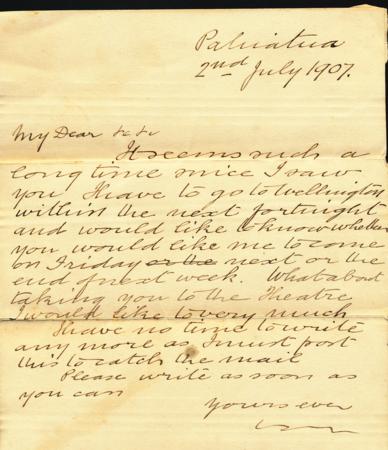 Pahiatua
2nd July 1907.
My Dear &c &c
It seems such a
long time since I saw
you I have to go to Wellington
within the next fortnight
and would like to know whether
you would like me to come
on Friday or the next or the
end of next week. What about
taking you to the Theatre
I would like to very much
I have no time to write
any more as I must post
this to catch the mail
Please write as soon as
you can
Yours ever